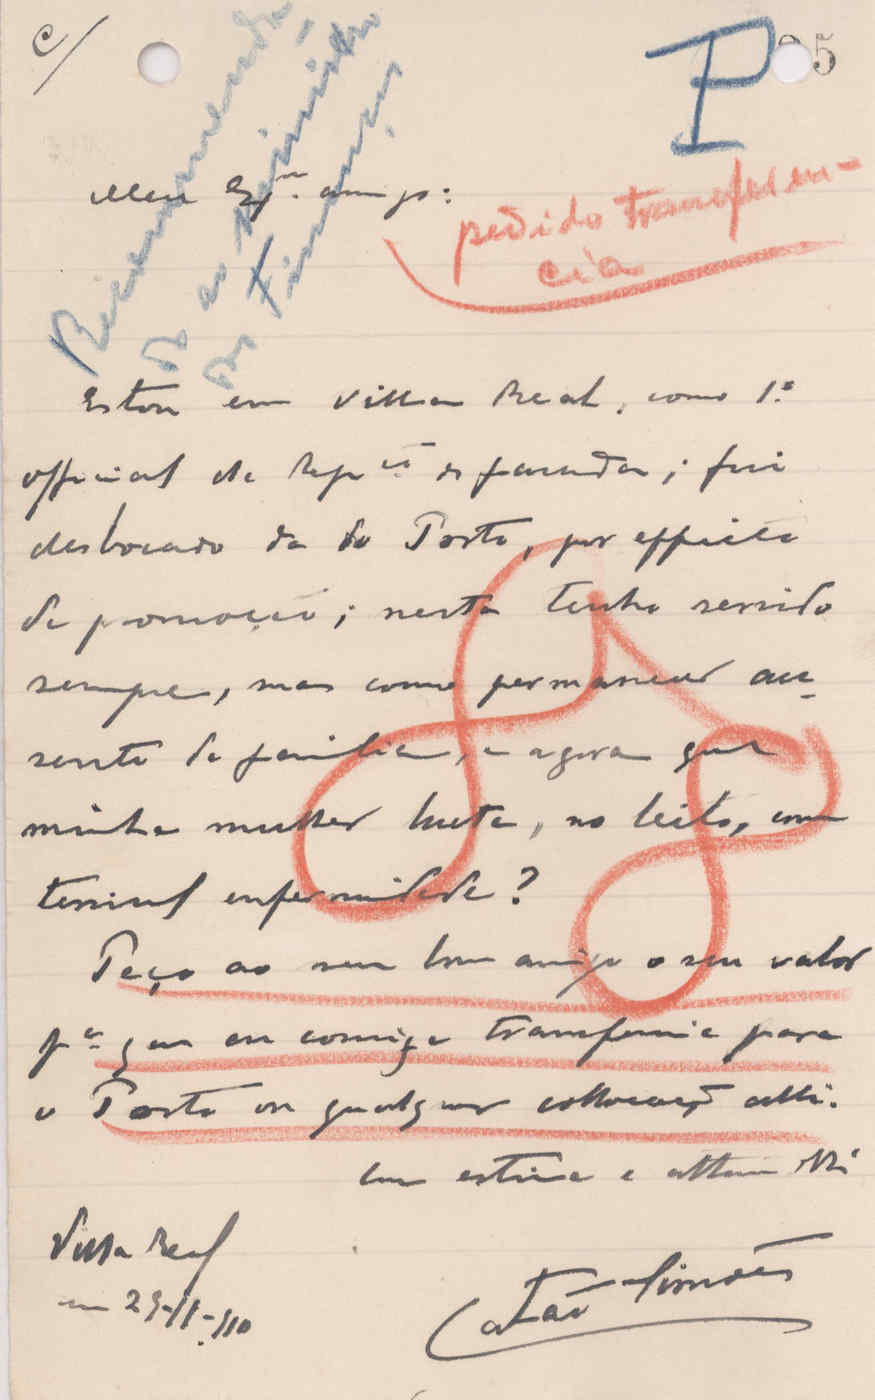 c/
P
5
Recommenda-
do ao Ministro
das Finanças
pedido transferen-
cia
Meu Exmo. amigo:
Estou em Villa Real, como 1.º
official da Repam de fazenda; fui
deslocado da do Porto, por effeito
de promoção; nesta tenho servido
sempre, mas como permanecer au-
sente da familia, e agora que
minha mulher lucta, no leito, com
terrivel enfermidade?
Peço ao meu bom amigo o seu valor
pa que eu consiga transferencia para
o Porto ou qualquer collocação alli.
Com estima e
Villa Real
em 29-11-910
Catão Simões